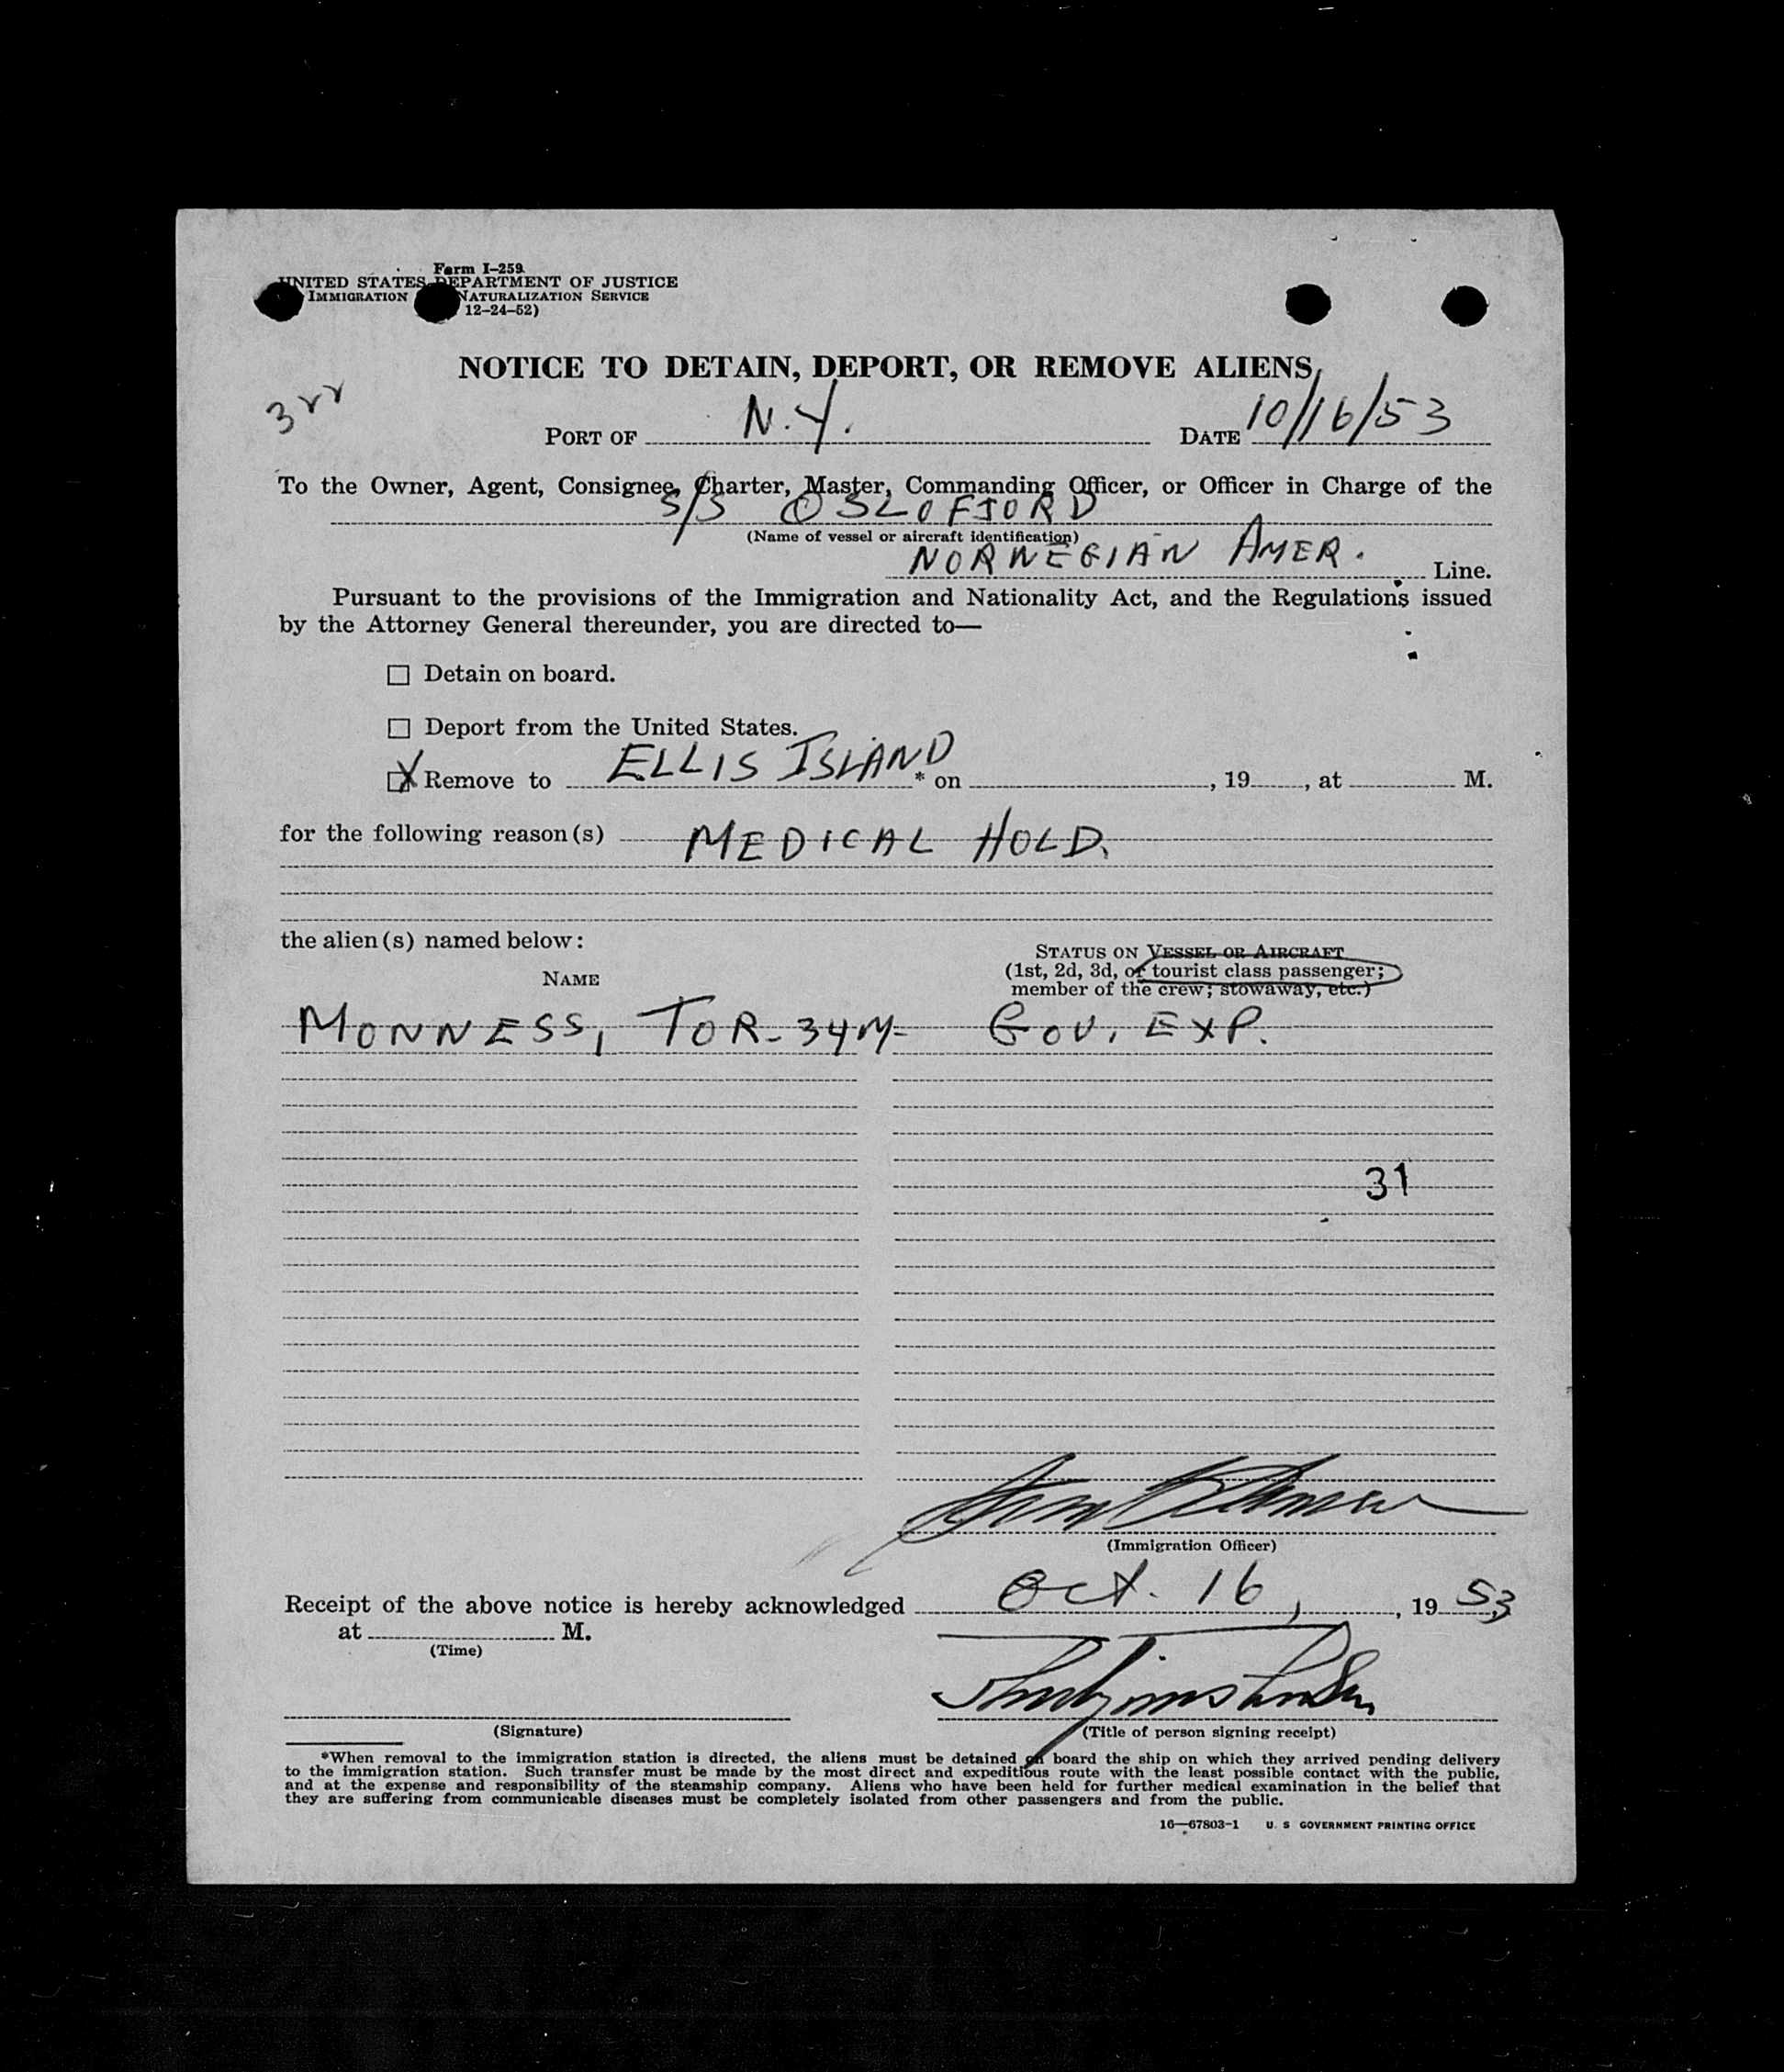 Form I-259
UNITED STATES DEPARTMENT OF JUSTICE
IMMIGRATION NATURALIZATION SERVICE
12-24-52)
NOTICE TO DETAIN, DEPORT, OR REMOVE ALIENS
PORT OF N.Y. DATE 10/16/53
To the Owner, Agent, Consignee, Charter, Master, Commanding Officer, or Officer in Charge of the
S/S OSLOFJORD
(Name of vessel or aircraft identification)
NORWEGIAN AMER. Line.
Pursuant to the provisions of the Immigration and Nationality Act, and the Regulations issued
by the Attorney General thereunder, you are directed to—
☐ Detain on board.
☐ Deport from the United States.
☒ Remove to ELLIS ISLAND * on , 19 , at M.
for the following reason(s) MEDICAL HOLD.
the alien(s) named below:
STATUS ON VESSEL OR AIRCRAFT
NAME (1st, 2d, 3d, or tourist class passenger;
member of the crew; stowaway, etc.)
MONNESS, TOR - 34 M - GOV. EXP.
31
(Immigration Officer)
Receipt of the above notice is hereby acknowledged Oct. 16, , 19 53
at M.
(Time)
(Signature) (Title of person signing receipt)
*When removal to the immigration station is directed, the aliens must be detained on board the ship on which they arrived pending delivery
to the immigration station. Such transfer must be made by the most direct and expeditious route with the least possible contact with the public,
and at the expense and responsibility of the steamship company. Aliens who have been held for further medical examination in the belief that
they are suffering from communicable diseases must be completely isolated from other passengers and from the public.
16—67803-1 U. S GOVERNMENT PRINTING OFFICE